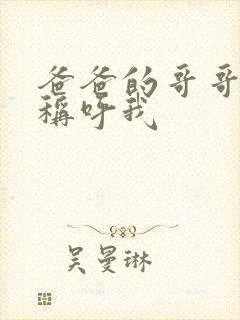 爸爸的哥哥
稱呼我
吴曼琳